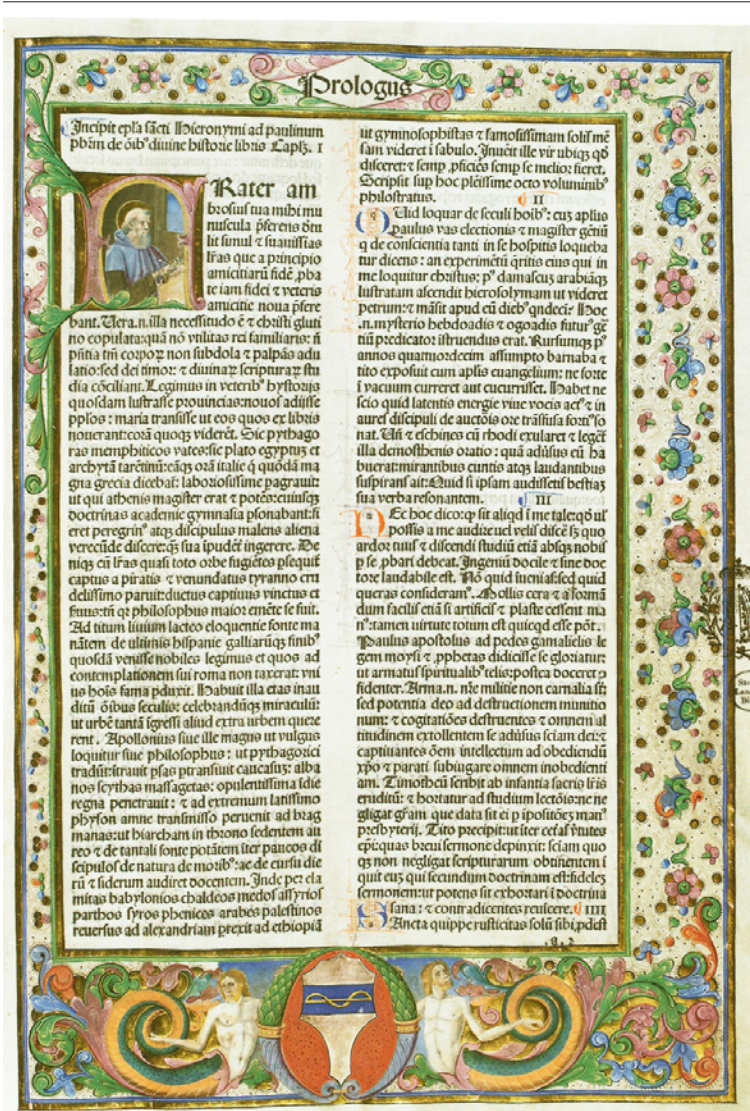 Prologus
Incipit epl̄a sācti Hieronymi ad paulinum
pb̄m de oīb' diuine historie libris Capl̄z. I
FRater am
brosius tua mihi mu
nuscula ꝑferens ðtu
lit simul ⁊ suauissīas
lr̄as que a principio
amicitiarū fidē ꝓba
te iam fidei ⁊ veteris
amicitie noua ꝓfere
bant. Uera.n.illa necessitudo ē ⁊ christi gluti
no copulata: quā nō vtilitas rei familiaris: n̄
pn̄tia tm̄ corpoꝝ non subdola ⁊ palpās adu
latio: sed dei timor: ⁊ diuinaꝝ scripturaꝝ stu
dia cōciliant. Legimus in veterib' hystorijs
quosdam lustrasse prouincias: nouos adijsse
pplos: maria transisse ut eos quos ex libris
nouerant: corā quoqꝫ viderēt. Sic pythago
ras memphiticos vates: sic plato egyptuꝫ et
archytā tarētinū: eāqꝫ orā italie q̄ quōdā ma
gna grecia dicebat̄: laboriosissime ꝑagrauit:
ut qui athenis magister erat ⁊ potēs: cuiusqꝫ
doctrinas academie gymnasia ꝑsonabant: fi
eret peregrin' atqꝫ discipulus malens aliena
verecūde discere: qꝫ sua īpudēt̄ ingerere. De
niqꝫ cū lr̄as quasi toto orbe fugiētes ꝑsequit̄
captus a piratis ⁊ venundatus tyranno cru
delissimo paruit: ductus captiuus vinctus et
ẜuus: tn̄ qꝛ philosophus maior emēte se fuit.
Ad titum liuium lacteo eloquentie fonte ma
nātem de ultimis hispanie galliarūqꝫ finib'
quosdā venisse nobiles legimus et quos ad
contemplationem sui roma non taxerat: vni
us hoīs fama ꝑduxit. Habuit illa etas inau
ditū oībus seculis: celebrandūqꝫ miraculū:
ut urbē tantā īgressi aliud extra urbem quere
rent. Apollonius siue ille magus ut vulgus
loquitur siue philosophus: ut pythagorici
tradūt: ītrauit ꝑsas ꝑtransiuit caucasuꝫ: alba
nos scythas massagetas: opulentissima īdie
regna penetrauit: ⁊ ad extremum latissimo
physon amne transmisso peruenit ad brag
manas: ut hiarcham in throno sedentem au
reo ⁊ de tantali fonte potātem īter paucos di
scipulos de natura de morib': ac de cursu die
rū ⁊ siderum audiret docentem. Inde per ela
mitas babylonios chaldeos medos assyrios
parthos syros phenices arabes palestinos
reuersus ad alexandriam ꝑrexit ad ethiopiā
ut gymnosophistas ⁊ famosissimam solis mē
sam videret ī sabulo. Inuēit ille vir ubiqꝫ qð
disceret: ⁊ semꝑ ꝓficiēs semꝑ se melior fieret.
Scripsit suꝑ hoc plēissime octo voluminib'
philostratus. II
QUid loquar de seculi hoīb': cuꝫ apl̄us
paulus vas electionis ⁊ magister gētiū
q̄ de conscientia tanti in se hospitis loqueba
tur dicens: an experimētū q̄ritis eius qui in
me loquitur christus: p' damascuꝫ arabiāqꝫ
lustratam ascendit hierosolymam ut videret
petrum: ⁊ māsit apud eū dieb' qndecī: Hoc
.n.mysterio hebdoadis ⁊ ogoadis futur' gē
tiū predicator īstruendus erat. Rursumqꝫ p'
annos quattuordecim assumpto barnaba ⁊
tito exposuit cum apl̄is euangelium: ne forte
ī vacuum curreret aut cucurrisset. Habet ne
scio quid latentis energie viue vocis act' ⁊ in
aures discipuli de auctoīs ore trāsfusa forti'so
nat. Un̄ ⁊ eschines cū rhodi exularet ⁊ leget̄
illa demosthenis oratio: quā aðusus eū ha
buerat: mirantibus cūctis atqꝫ laudantibus
suspirans ait: Quid si ipsam audissetis bestiaꝫ
sua verba resonantem. III
NEc hoc dico: qꝫ sit aliqð ī me tale: qð ul̄
possis a me audire uel velis discē sꝫ quo
ardor tuus ⁊ discendi studiū etiā absqꝫ nobis
p se ꝓbari debeat. Ingeniū docile ⁊ sine doc
tore laudabile est. Nō quid īuenias: sed quid
queras consideram'. Mollis cera ⁊ aðformā
dum facilis etiā si artificis ⁊ plaste cessent ma
n': tamen uirtute totum est quicqð esse pōt.
Paulus apostolus ad pedes gamalielis le
gem moysi ⁊ ꝓphetas didicisse se gloriatur:
ut armatus spiritualib' telis: postea doceret ꝯ
fidenter. Arma.n. nr̄e militie non carnalia sūt
sed potentia deo ad destructionem munitio
num: ⁊ cogitatiōes destruentes ⁊ omnem al
titudinem extollentem se aðusus sciam dei: ⁊
captiuantes ōem intellectum ad obediendū
xp̄o ⁊ parati subiugare omnem inobedienti
am. Timotheū scribit ab infantia sacris lr̄is
eruditū: ⁊ hortatur ad studium lectōis: ne ne
gligat gr̄am que data sit ei p īpositōeꝫ man'
presbyterij. Tito precipit: ut īter cetās v̄tutes
ep̄i: quas breui sermone depinxit: sciam quo
qꝫ non negligat scripturarum obtinentem ī
quit euꝫ qui secundum doctrinam est: fideleꝫ
sermonem: ut potens sit exhortari ī doctrina
sana: ⁊ contradicentes reuīcere. IIII
SAncta quippe rusticitas solū sibi ꝓdest
a 2